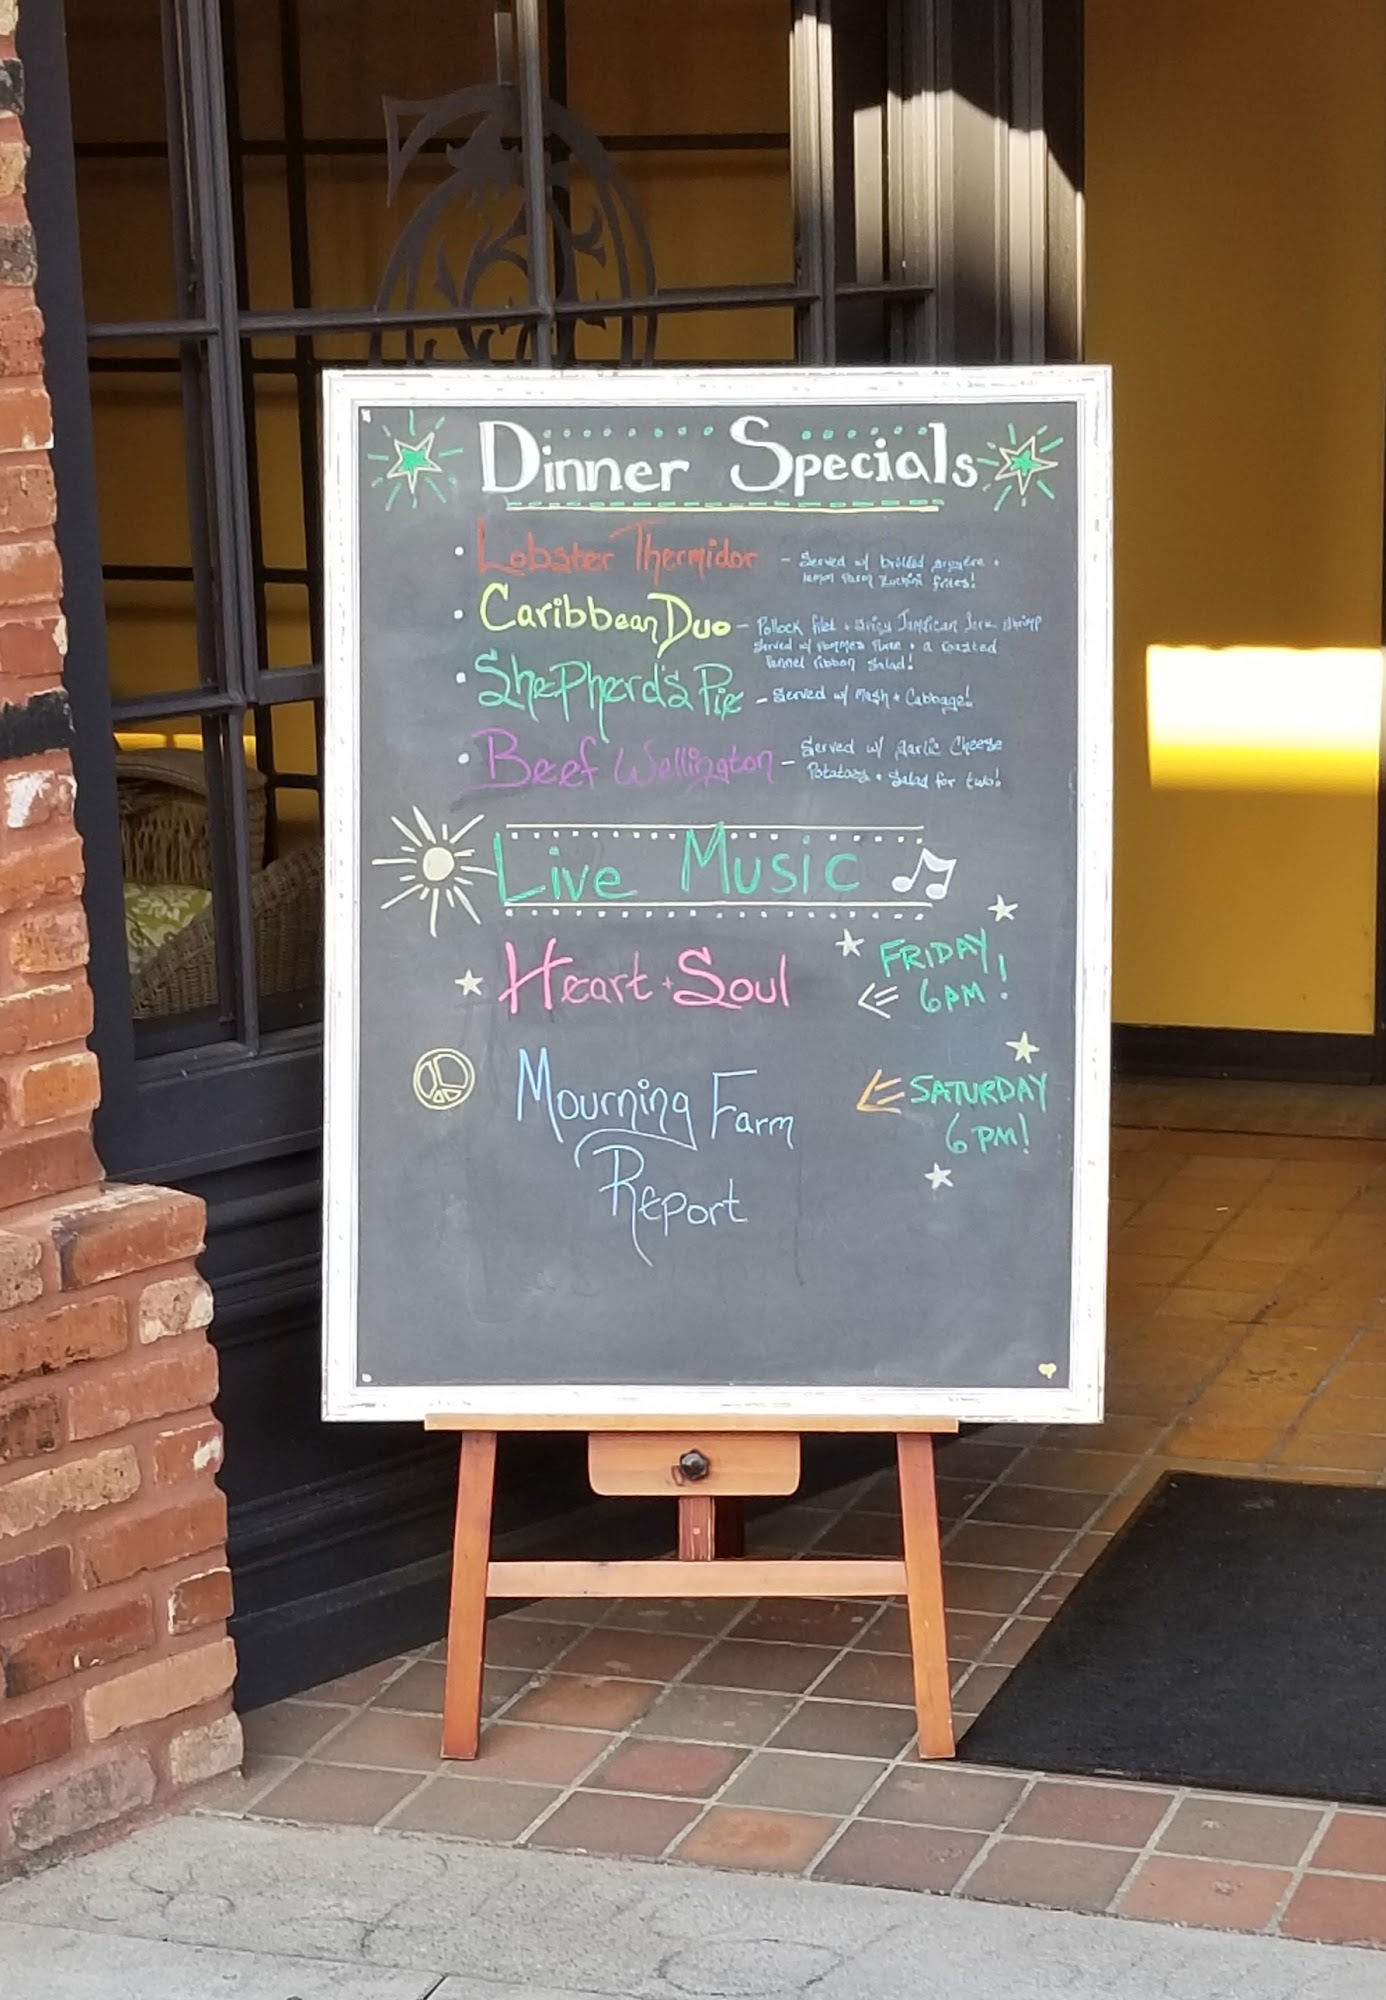 Dinner Specials
• Lobster Thermidor – Served w/ broiled gruyere +
lemon parm zuchini frites!
• Caribbean Duo – Pollock filet + spicy Jamaican Jerk shrimp
served w/ pommes puree + a roasted
fennel ribbon salad!
• Shepherd's Pie – Served w/ Mash + Cabbage!
• Beef Wellington – Served w/ garlic Cheese
Potatoes + Salad for two!
Live Music
Heart + Soul
FRIDAY
6PM!
Mourning Farm
Report
SATURDAY
6PM!